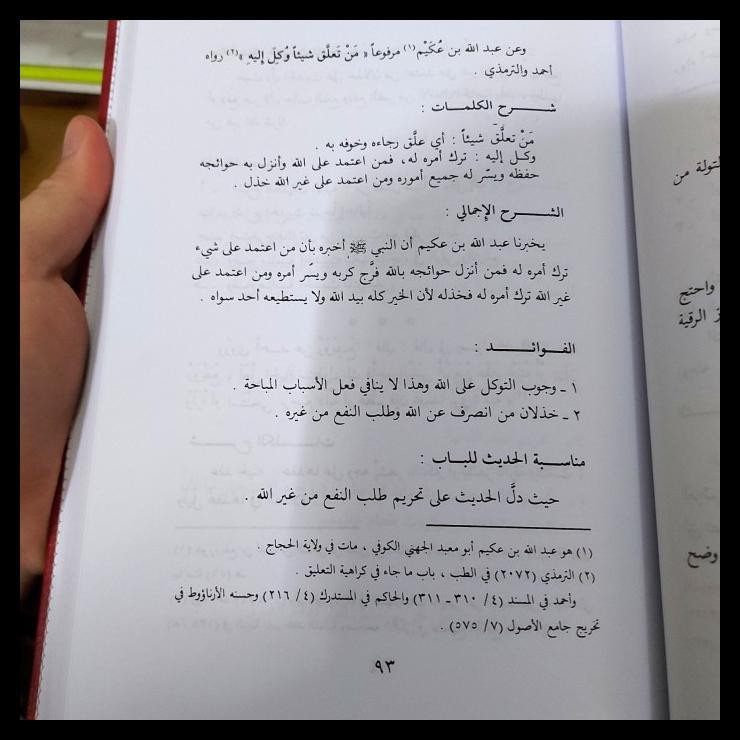 وعن عبد الله بن عُكَيْم(١) مرفوعاً « مَنْ تَعلَّق شيئاً وُكلَ إليهِ »(٢) رواه
أحمد والترمذي .
شـــرح الكلمـــات :
مَنْ تعلَّقَ شيئاً : أي علَّق رجاءه وخوفه به .
وكـل إليه : ترك أمره له، فمن اعتمد على الله وأنزل به حوائجه
حفظه ويسّر له جميع أموره ومن اعتمد على غير الله خذل .
الشــــرح الإجمالي :
يخبرنا عبد الله بن عكيم أن النبي ﷺ أخبره بأن من اعتمد على شيء
ترك أمره له فمن أنزل حوائجه بالله فرَّج كربه ويسّر أمره ومن اعتمد على
غير الله ترك أمره له فخذله لأن الخير كله بيد الله ولا يستطيعه أحد سواه .
الفـــوائــــد :
١ ـ وجوب التوكل على الله وهذا لا ينافي فعل الأسباب المباحة .
٢ ـ خذلان من انصرف عن الله وطلب النفع من غيره .
مناسـبة الحديث للبـاب :
حيث دلَّ الحديث على تحريم طلب النفع من غير الله .
(١) هو عبد الله بن عكيم أبو معبد الجهني الكوفي ، مات في ولاية الحجاج .
(٢) الترمذي (٢٠٧٢) في الطب ، باب ما جاء في كراهية التعليق .
وأحمد في المسند (٤/ ٣١٠ ـ ٣١١) والحاكم في المستدرك (٤/ ٢١٦) وحسنه الأرناؤوط في
تخريج جامع الأصول (٧/ ٥٧٥) .
٩٣
لتولة من
واحتج
الرقية
وضح